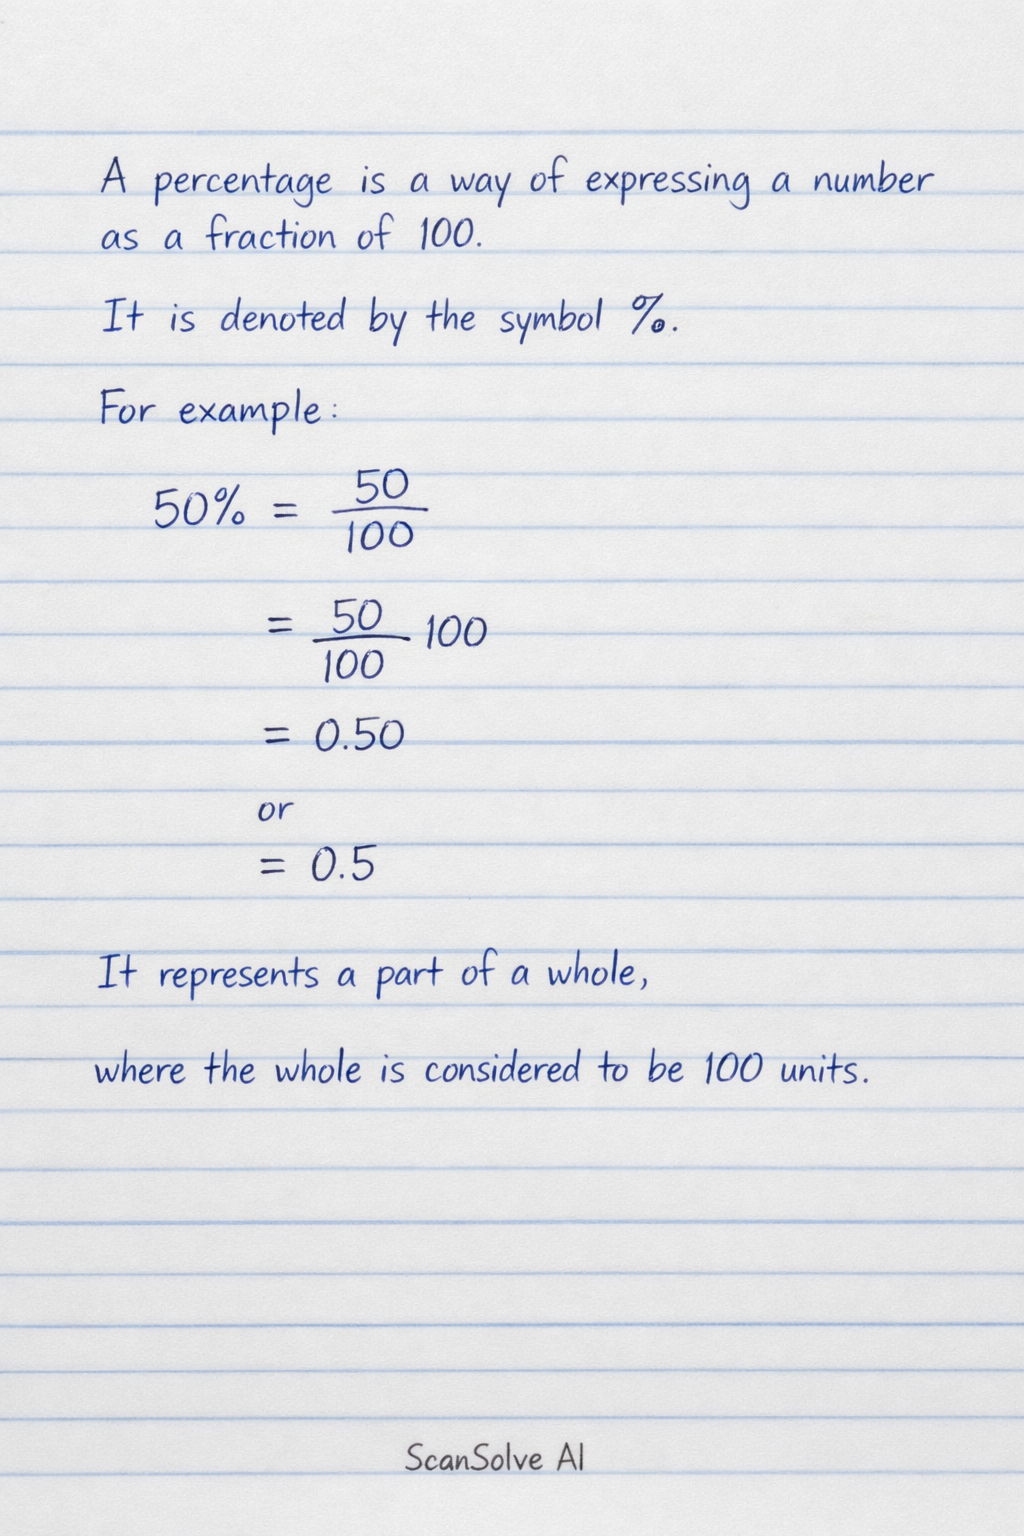 A percentage is a way of expressing a number
as a fraction of 100.
It is denoted by the symbol %.
For example:
50% = 50/100
= 50/100 100
= 0.50
or
= 0.5
It represents a part of a whole,
where the whole is considered to be 100 units.
ScanSolve AI